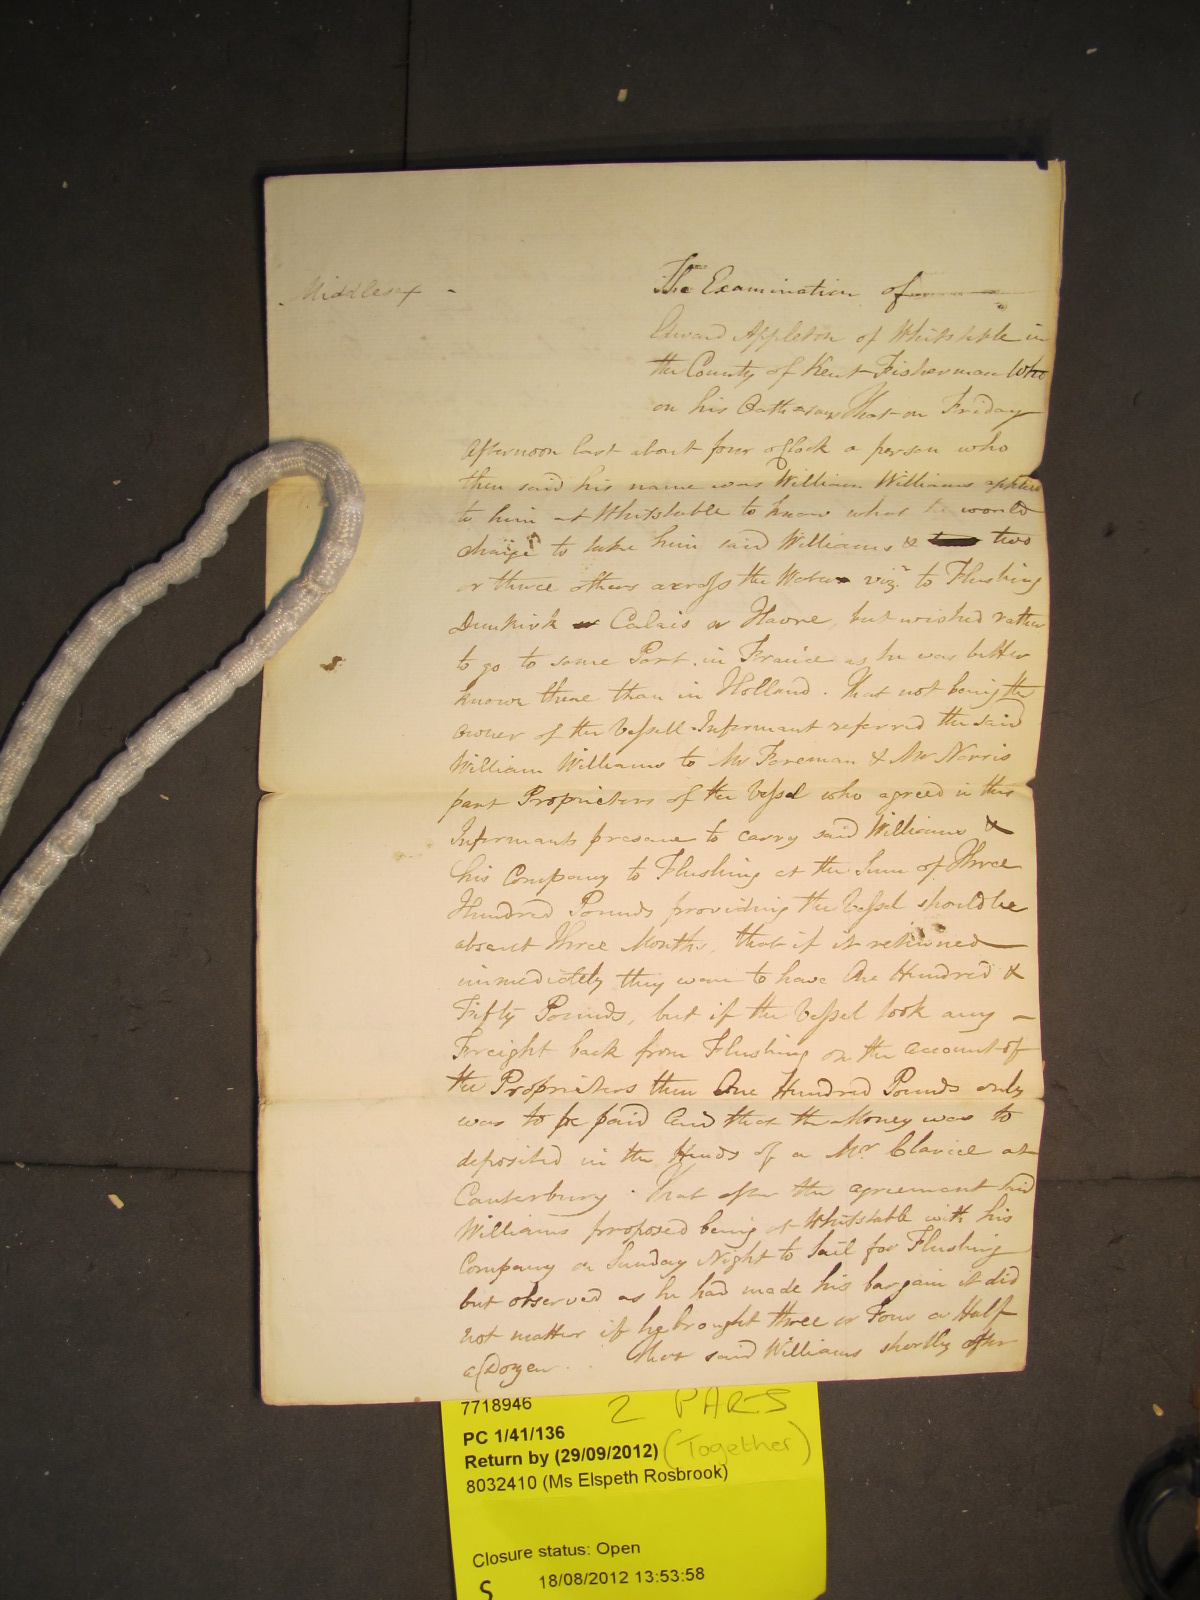 Middlesex -
The Examination of
Edward Appleton of Whitstable in
the County of Kent Fisherman Who
on his Oath says That on Friday
Afternoon last about four oClock a person who
then said his name was William Williams applied
to him at Whitstable to know what he would
charge to take him said Williams & two
or three others across the Water vizt to Flushing
Dunkirk or Calais or Havre, but wished rather
to go to some Port in France as he was better
known there than in Holland. That not being the
owner of the Vessell Informant referred the said
William Williams to Mr Foreman & Mr Norris
part Proprietors of the Vessel who agreed in this
Informants presence to carry said Williams &
his Company to Flushing at the Sum of Three
Hundred Pounds providing the Vessel should be
absent Three Months, that if it returned
immediately they were to have One Hundred &
Fifty Pounds, but if the Vessel took any -
Freight back from Flushing on the account of
the Proprietors then One Hundred Pounds only
was to be paid And that the Money was to
deposited in the Hands of a Mr Claviel at
Canterbury. That after the agreement said
Williams proposed being at Whitstable with his
Company on Sunday Night to Sail for Flushing
but observed as he had made his bargain it did
not matter if he brought three or Four or Half
a Dozen. That said Williams shortly after
7718946
2 PARTS
PC 1/41/136
Return by (29/09/2012) (Together)
8032410 (Ms Elspeth Rosbrook)
Closure status: Open
S 18/08/2012 13:53:58